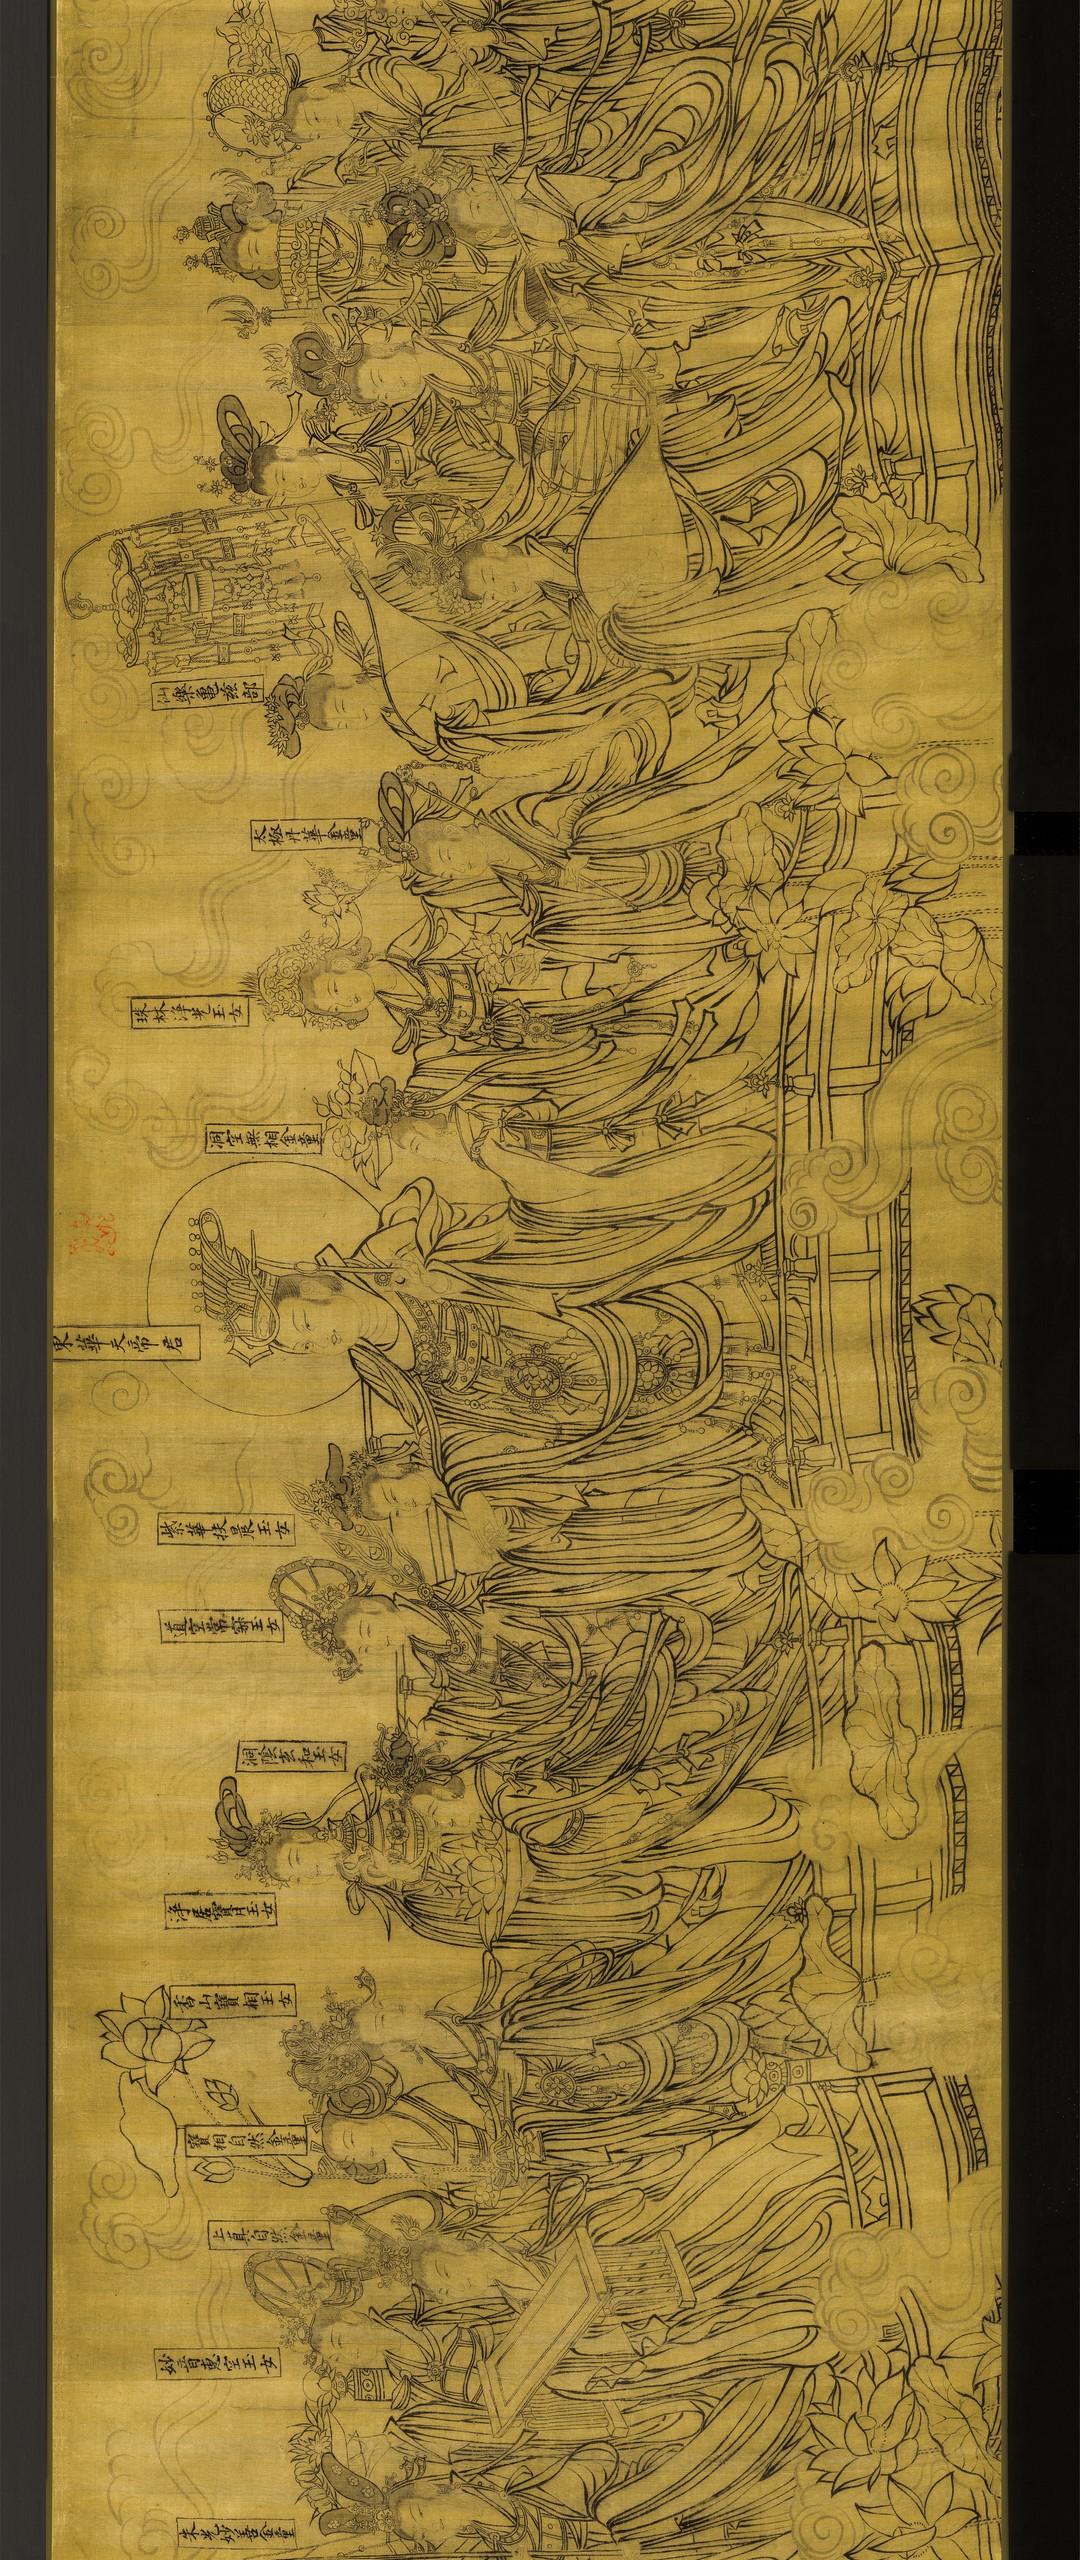 仙樂龜茲部
太極丹華金童
珠林淨光玉女
洞空無相金童
東華天帝君
紫華扶晨玉女
道空常寂玉女
洞陰玄和玉女
淨居寶月玉女
香山寶相玉女
寶相自然金童
上真自然金童
妙音惠空玉女
朱光妙善金童